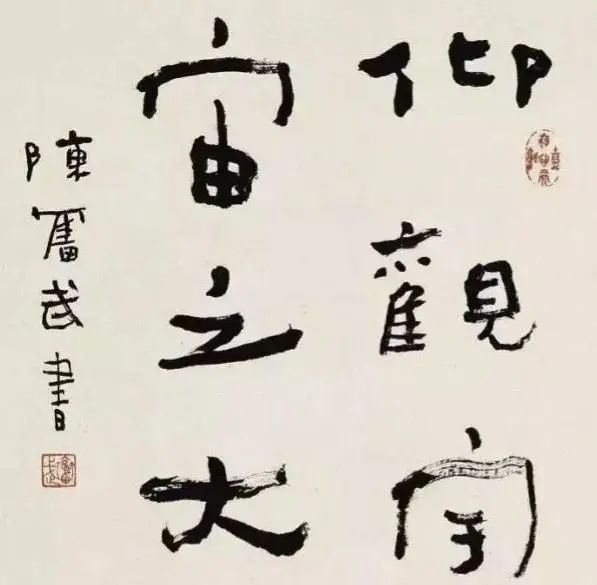 仰觀宇
宙之大
陳奮武書